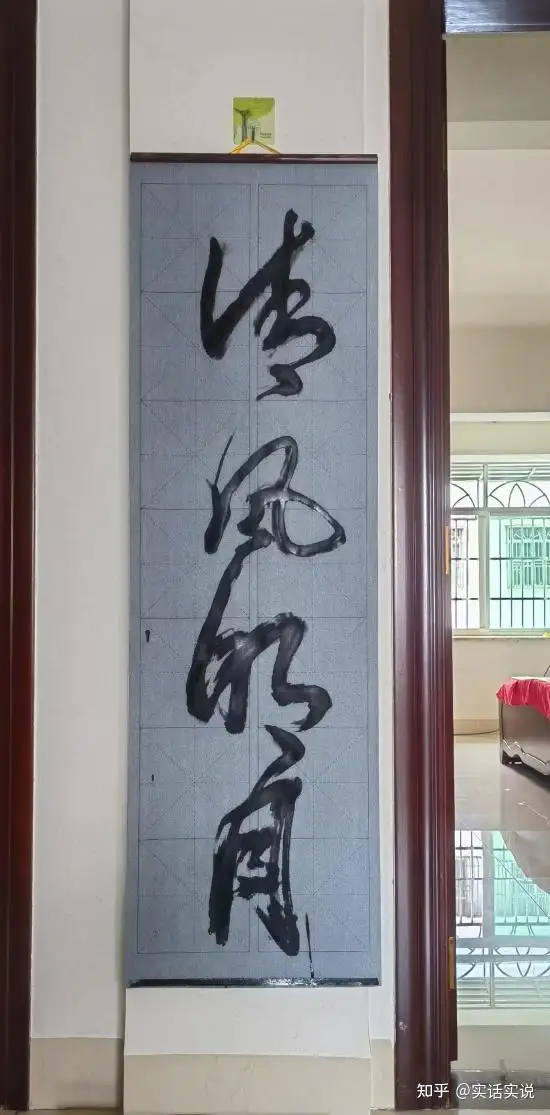 清风明月
知乎 @实话实说